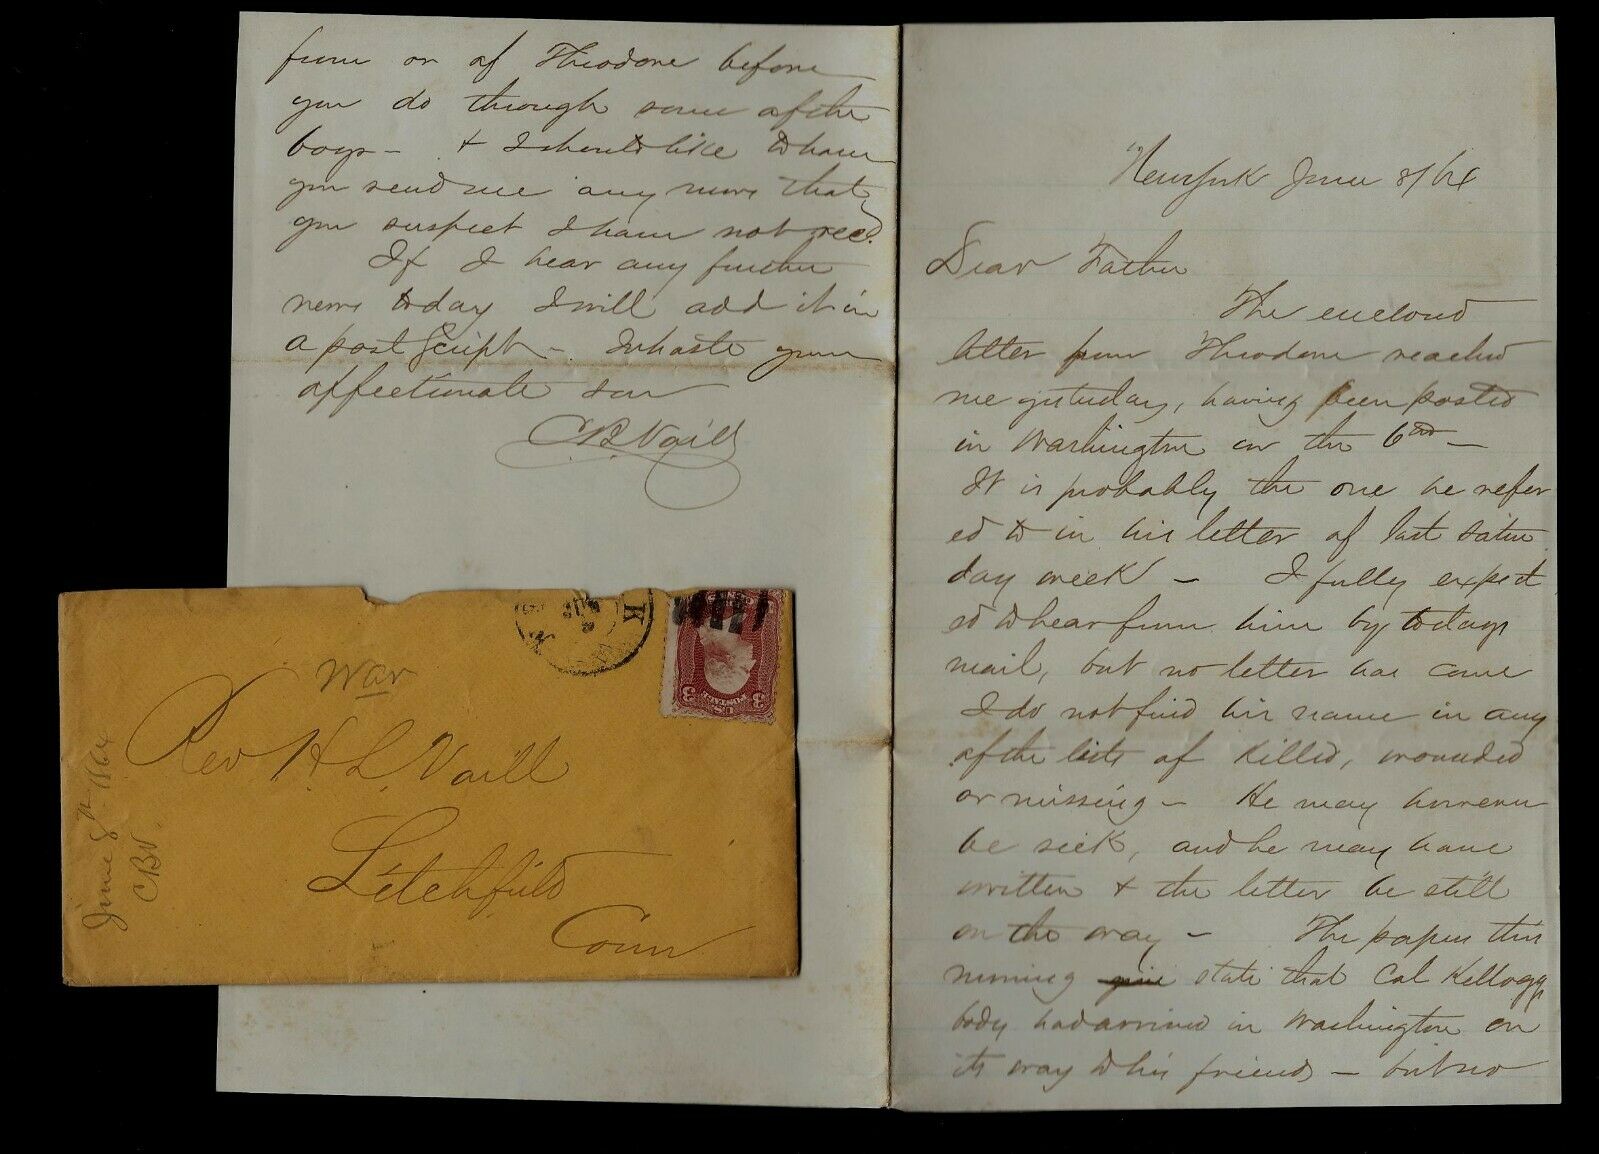 New York June 8/64
Dear Father
The enclosed
letter from Theodore reached
me yesterday, having been posted
in Washington on the 6th —
It is probably the one he refer
ed to in his letter of last satur
day week — I fully expect
ed to hear from him by todays
mail, but no letter has come
I do not find his name in any
of the lists of killed, wounded
or missing — He may however
be sick, and he may have
written & the letter be still
on the way — The papers this
morning state that Col Kellogg
body had arrived in Washington on
its way to his friends — but no
from or of Theodore before
you do through some of the
boys — & I should like to have
you send me any news that
you suspect I have not recd.
If I hear any further
news today I will add it in
a post script — In haste your
affectionate son
C.B. Vaill
War
Rev H. L. Vaill
Litchfield
Conn
June 8th 1864
CBV.
U.S. POSTAGE
3 3
CENTS